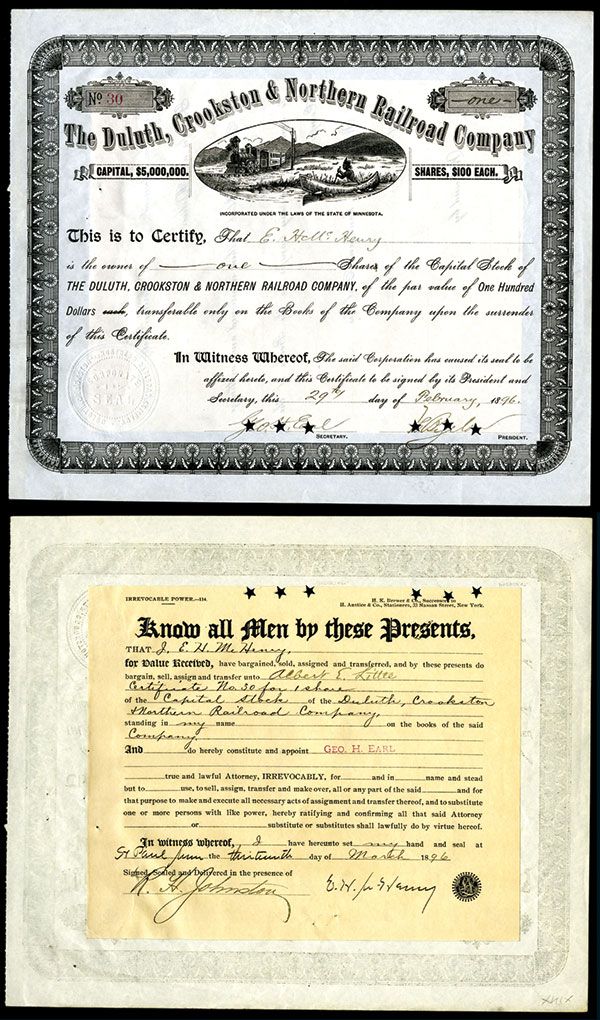 No 30
one
The Duluth, Crookston & Northern Railroad Company
CAPITAL, $5,000,000.
SHARES, $100 EACH.
INCORPORATED UNDER THE LAWS OF THE STATE OF MINNESOTA.
This is to Certify, That E. H. Mc Henry
is the owner of one Shares of the Capital Stock of
THE DULUTH, CROOKSTON & NORTHERN RAILROAD COMPANY, of the par value of One Hundred
Dollars each, transferable only on the Books of the Company upon the surrender
of this Certificate.
In Witness Whereof, The said Corporation has caused its seal to be
affixed hereto, and this Certificate to be signed by its President and
Secretary, this 29th day of February, 1896.
Geo H. Earl
SECRETARY.
PRESIDENT.
IRREVOCABLE POWER.—414.
H. K. Brewer & Co., Successors to
H. Anstice & Co., Stationers, 53 Nassau Street, New York.
Know all Men by these Presents,
THAT I, E. H. McHenry,
for Value Received, have bargained, sold, assigned and transferred, and by these presents do
bargain, sell, assign and transfer unto Albert E. Little
Certificate No. 30 for 1 share
of the Capital Stock of the Duluth, Crookston
& Northern Railroad Company,
standing in my name on the books of the said
Company
And do hereby constitute and appoint GEO. H. EARL
true and lawful Attorney, IRREVOCABLY, for and in name and stead
but to use, to sell, assign, transfer and make over, all or any part of the said and for
that purpose to make and execute all necessary acts of assignment and transfer thereof, and to substitute
one or more persons with like power, hereby ratifying and confirming all that said Attorney
or substitute or substitutes shall lawfully do by virtue hereof.
In witness whereof, I have hereunto set my hand and seal at
St Paul Minn the thirteenth day of March 1896
Signed, Sealed and Delivered in the presence of
R. H. Johnston
E. H. McHenry